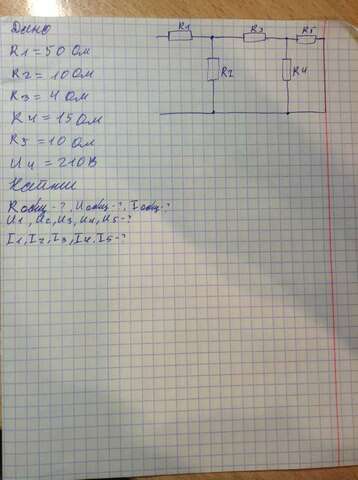 Дано
R1 = 50 Ом
R2 = 10 Ом
R3 = 4 Ом
R4 = 15 Ом
R5 = 10 Ом
U4 = 210 В
Найти
Rобщ-?, Uобщ-?, Iобщ-?
U1, U2, U3, U4, U5-?
I1, I2, I3, I4, I5-?
R1 R3 R5
R2 R4